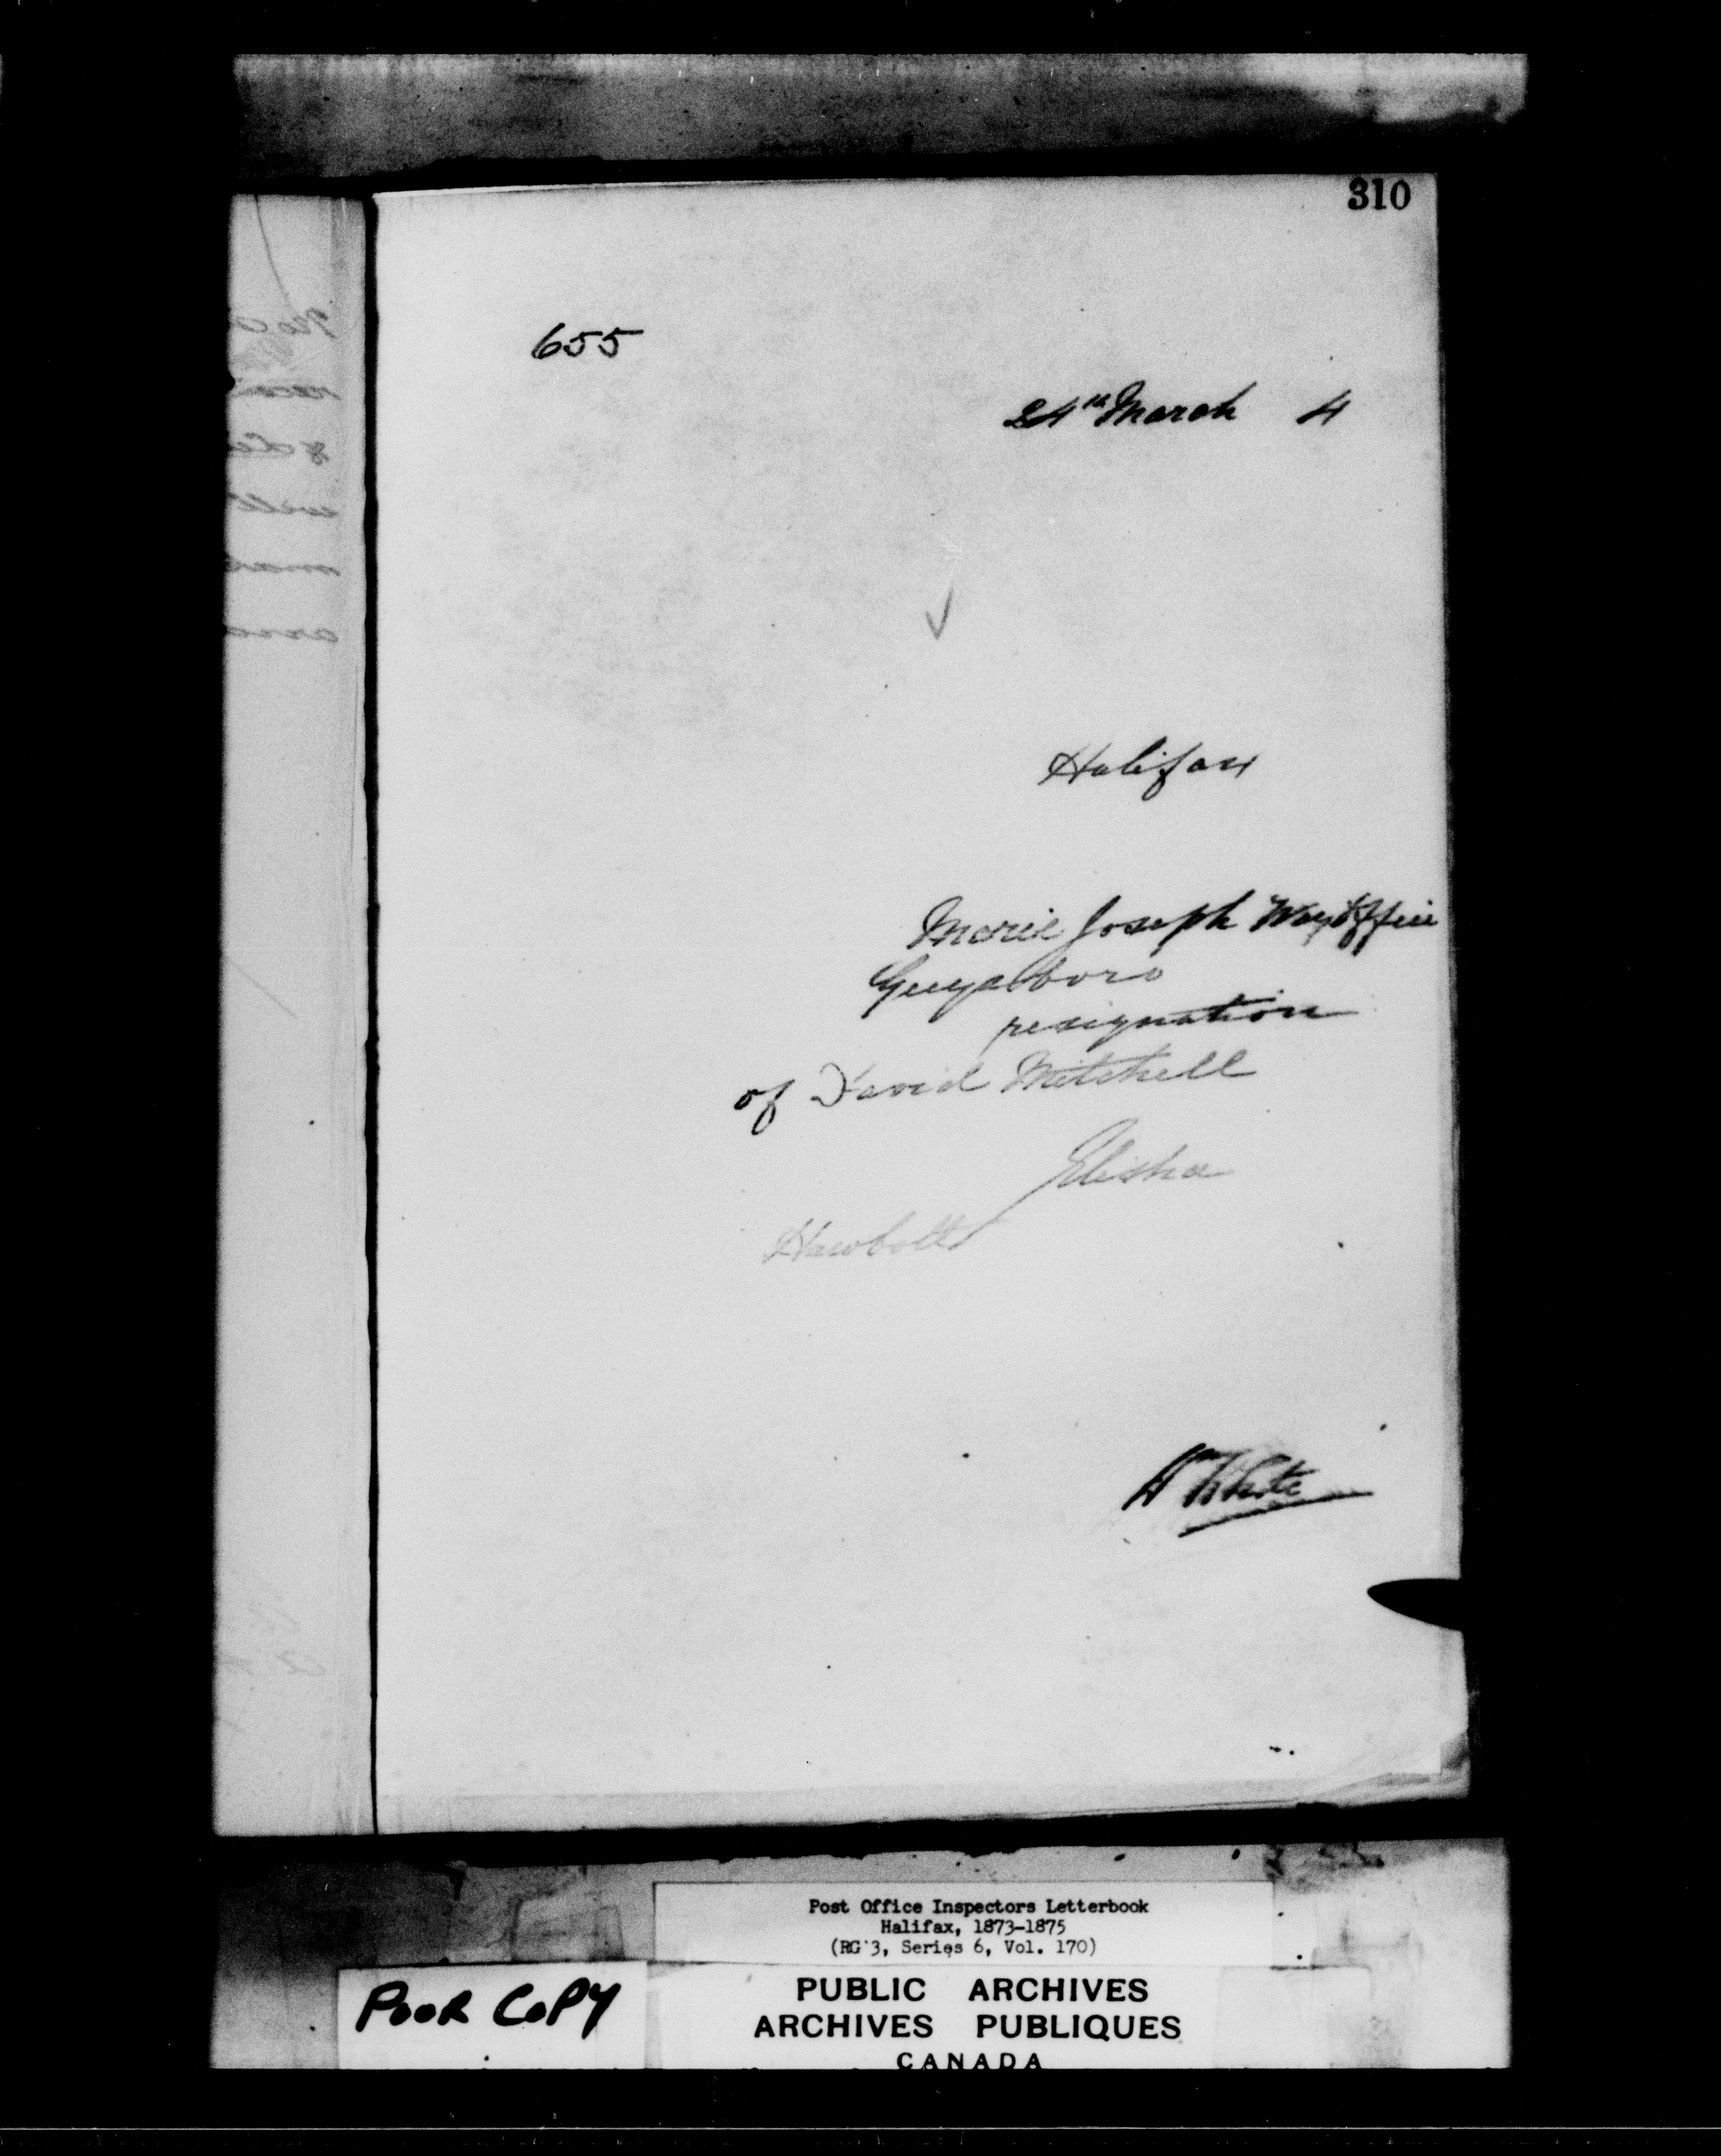 310
655
24th March 4
Halifax
Marie Joseph Way Office
Guysboro
resignation
of David Mitchell
Elisha
Hawbolt
A White
Post Office Inspectors Letterbook
Halifax, 1873-1875
(RG 3, Series 6, Vol. 170)
POOR COPY
PUBLIC ARCHIVES
ARCHIVES PUBLIQUES
CANADA